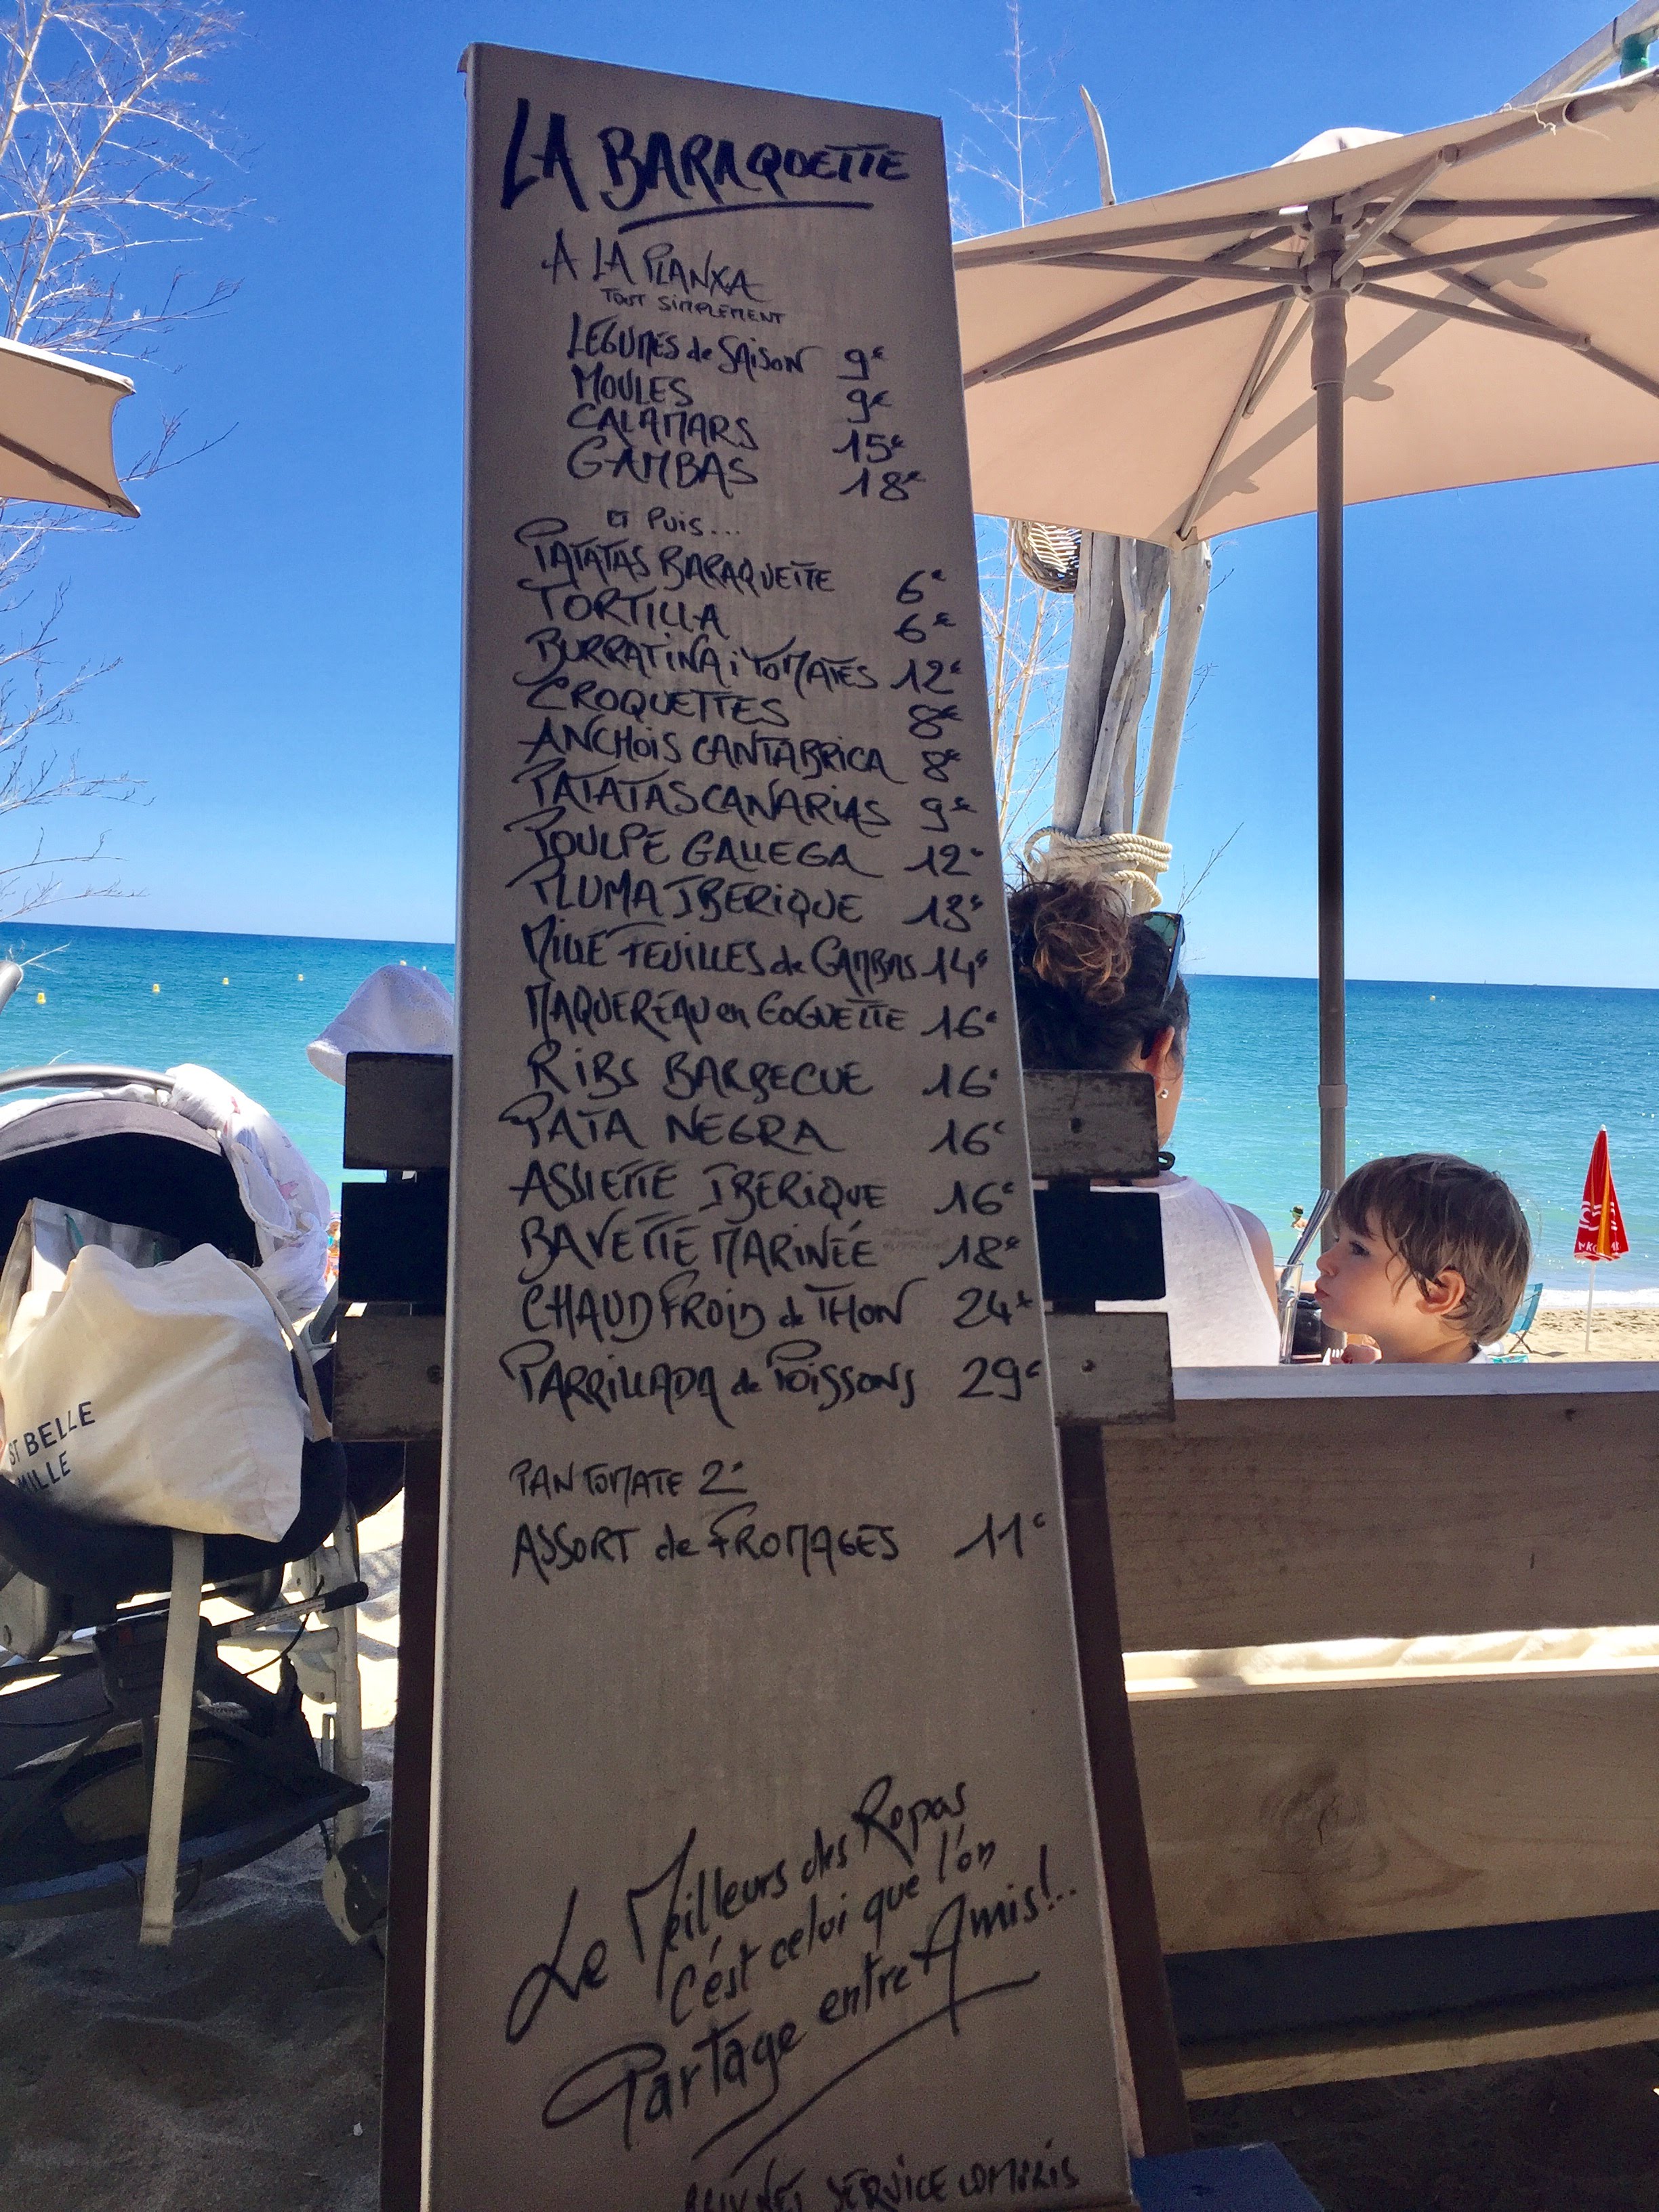 LA BARAQUETTE
A LA PLANXA
TOUT SIMPLEMENT
LEGUMES de SAISON 9€
MOULES 9€
CALAMARS 15€
GAMBAS 18€
ET Puis...
PATATAS BARAQUETTE 6€
TORTILLA 6€
BURRATINA i TOMATES 12€
CROQUETTES 8€
ANCHOIS CANTABRICA 8€
PATATAS CANARIAS 9€
POULPE GALLEGA 12€
PLUMA IBERIQUE 13€
MILLE FEUILLES de GAMBAS 14€
MAQUEREAU en GOGUETTE 16€
RIBS BARBECUE 16€
PATA NEGRA 16€
ASSIETTE IBERIQUE 16€
BAVETTE MARINÉE 18€
CHAUD FROID de THON 24€
PARRILLADA de POISSONS 29€
PAN TOMATE 2€
ASSORT de FROMAGES 11€
Le Meilleurs des Repas
C'est celui que l'on
Partage entre Amis!..
PRIX NET SERVICE COMPRIS
ST BELLE
MILLE